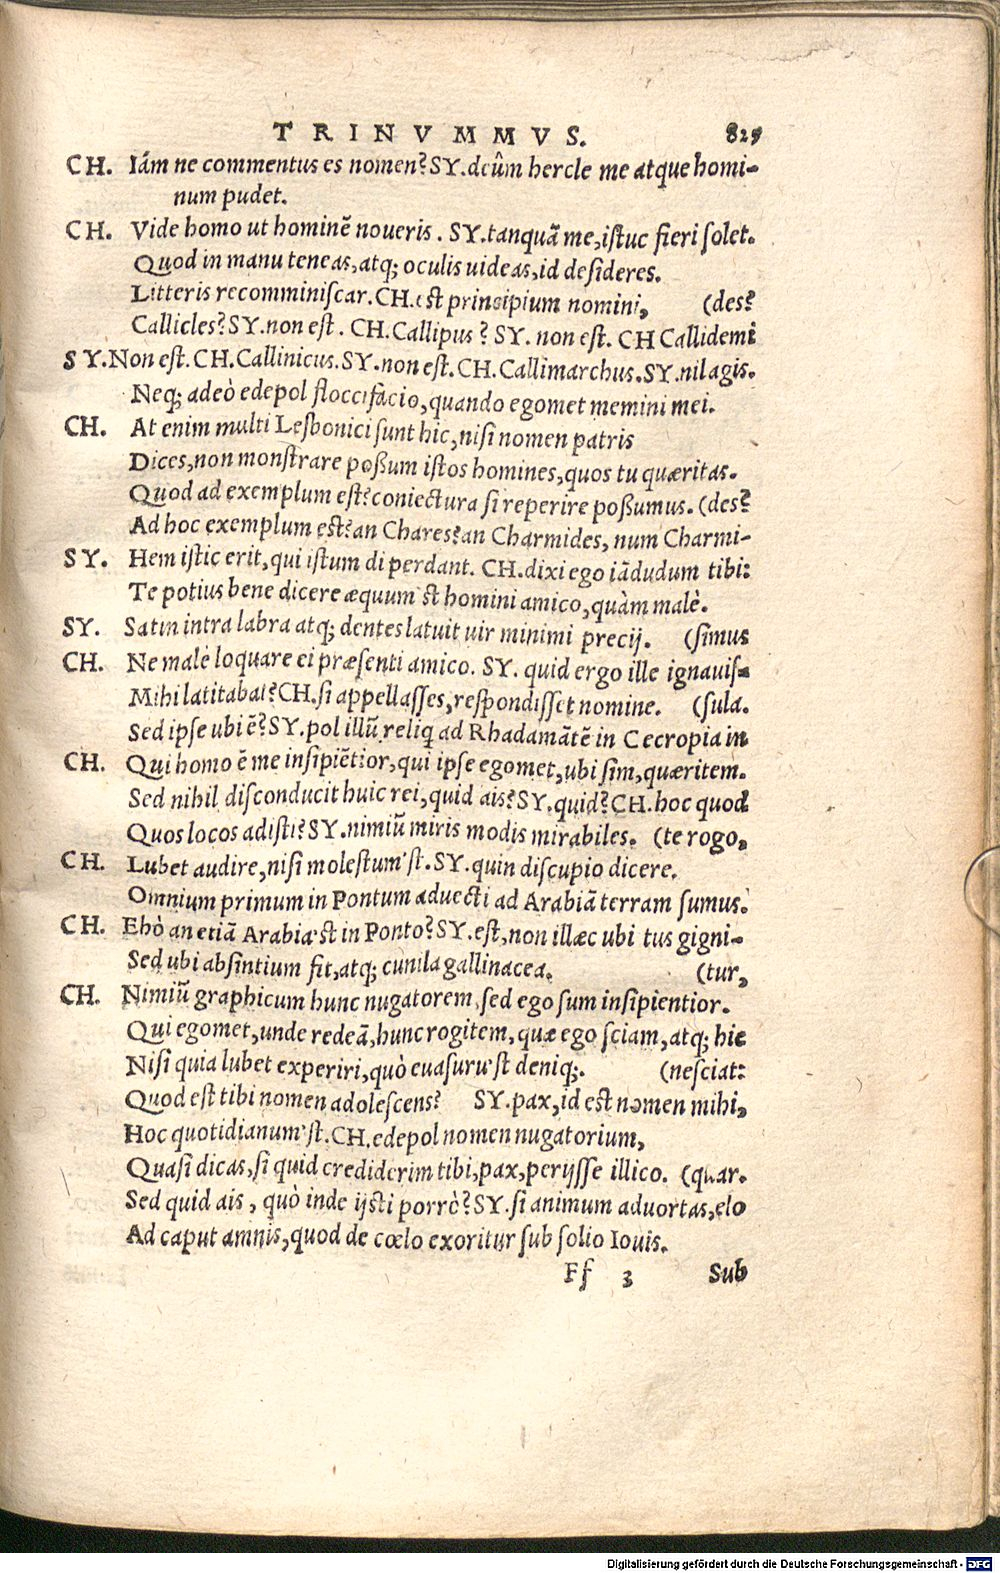 TRINVMMVS. 829
CH. Iám ne commentus es nomen? SY. deûm hercle me atque homi-
num pudet.
CH. Vide homo ut hominẽ noueris. SY. tanquã me, istuc fieri solet.
Quod in manu teneas, atq; oculis uideas, id desideres.
Litteris recomminiscar. CH. est principium nomini, (des?
Callicles? SY. non est. CH. Callipus? SY. non est. CH Callidemi
SY. Non est. CH. Callinicus. SY. non est. CH. Callimarchus. SY. nil agis.
Neq; adeò edepol flocci facio, quando egomet memini mei.
CH. At enim multi Lesbonici sunt hic, nisi nomen patris
Dices, non monstrare poßum istos homines, quos tu quæritas.
Quod ad exemplum est? coniectura si reperire poßumus. (des?
Ad hoc exemplum est? an Chares? an Charmides, num Charmi-
SY. Hem istic erit, qui istum di perdant. CH. dixi ego iãdudum tibi:
Te potius bene dicere æquum'st homini amico, quàm malè.
SY. Satin intra labra atq; dentes latuit uir minimi precij. (simus
CH. Ne malè loquare ei præsenti amico. SY. quid ergo ille ignauis-
Mihi latitabat? CH. si appellasses, respondisset nomine. (sula.
Sed ipse ubi ẽ? SY. pol illũ reliq ad Rhadamãtẽ in Cecropia in
CH. Qui homo ẽ me insipiẽtior, qui ipse egomet, ubi sim, quæritem.
Sed nihil disconducit huic rei, quid ais? SY. quid? CH. hoc quod
Quos locos adisti? SY. nimiũ miris modis mirabiles. (te rogo,
CH. Lubet audire, nisi molestum'st. SY. quin discupio dicere.
Omnium primum in Pontum aduecti ad Arabiã terram sumus.
CH. Ehò an etiã Arabia'st in Ponto? SY. est, non illæc ubi tus gigni-
Sed ubi absintium fit, atq; cunila gallinacea. (tur,
CH. Nimiũ graphicum hunc nugatorem, sed ego sum insipientior.
Qui egomet, unde redeã, hunc rogitem, quæ ego sciam, atq; hic
Nisi quia lubet experiri, quò euasuru'st deniq;. (nesciat:
Quod est tibi nomen adolescens? SY. pax, id est nomen mihi,
Hoc quotidianum'st. CH. edepol nomen nugatorium,
Quasi dicas, si quid crediderim tibi, pax, perijsse illico. (quar.
Sed quid ais, quò inde ijsti porrò? SY. si animum aduortas, elo
Ad caput amnis, quod de cœlo exoritur sub solio Iouis.
Ff 3 Sub
Digitalisierung gefördert durch die Deutsche Forschungsgemeinschaft - DFG